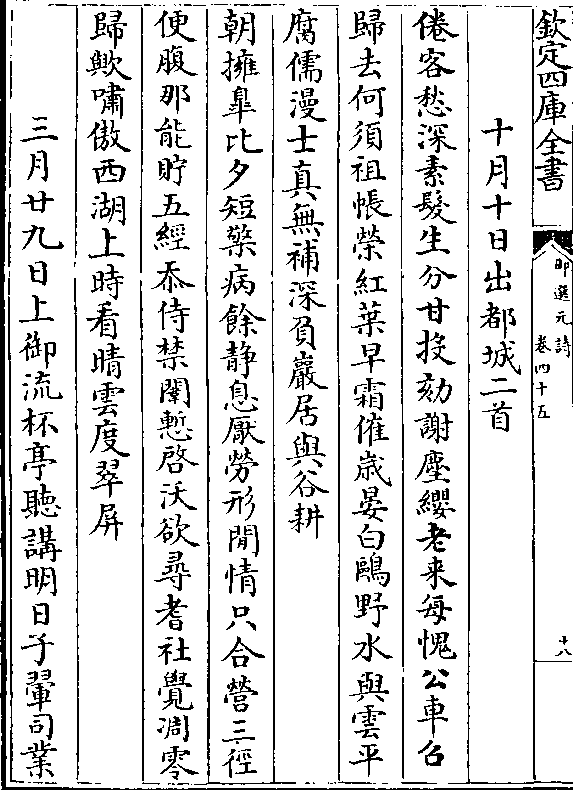 欽定四庫全書
御選元詩
卷四十五
十八
十月十日出都城二首
倦客愁深素髮生分甘投劾謝塵纓老来每愧公車召
歸去何須祖帳榮紅葉早霜催歳晏白鷗野水與雲平
腐儒漫士真無補深負巖居與谷耕
朝擁臯比夕短檠病餘静息厭勞形閒情只合營三徑
便腹那能貯五經忝侍禁闈慙啓沃欲尋耆社覺凋零
歸歟嘯傲西湖上時看晴雲度翠屏
三月廿九日上御流杯亭聽講明日子翬司業